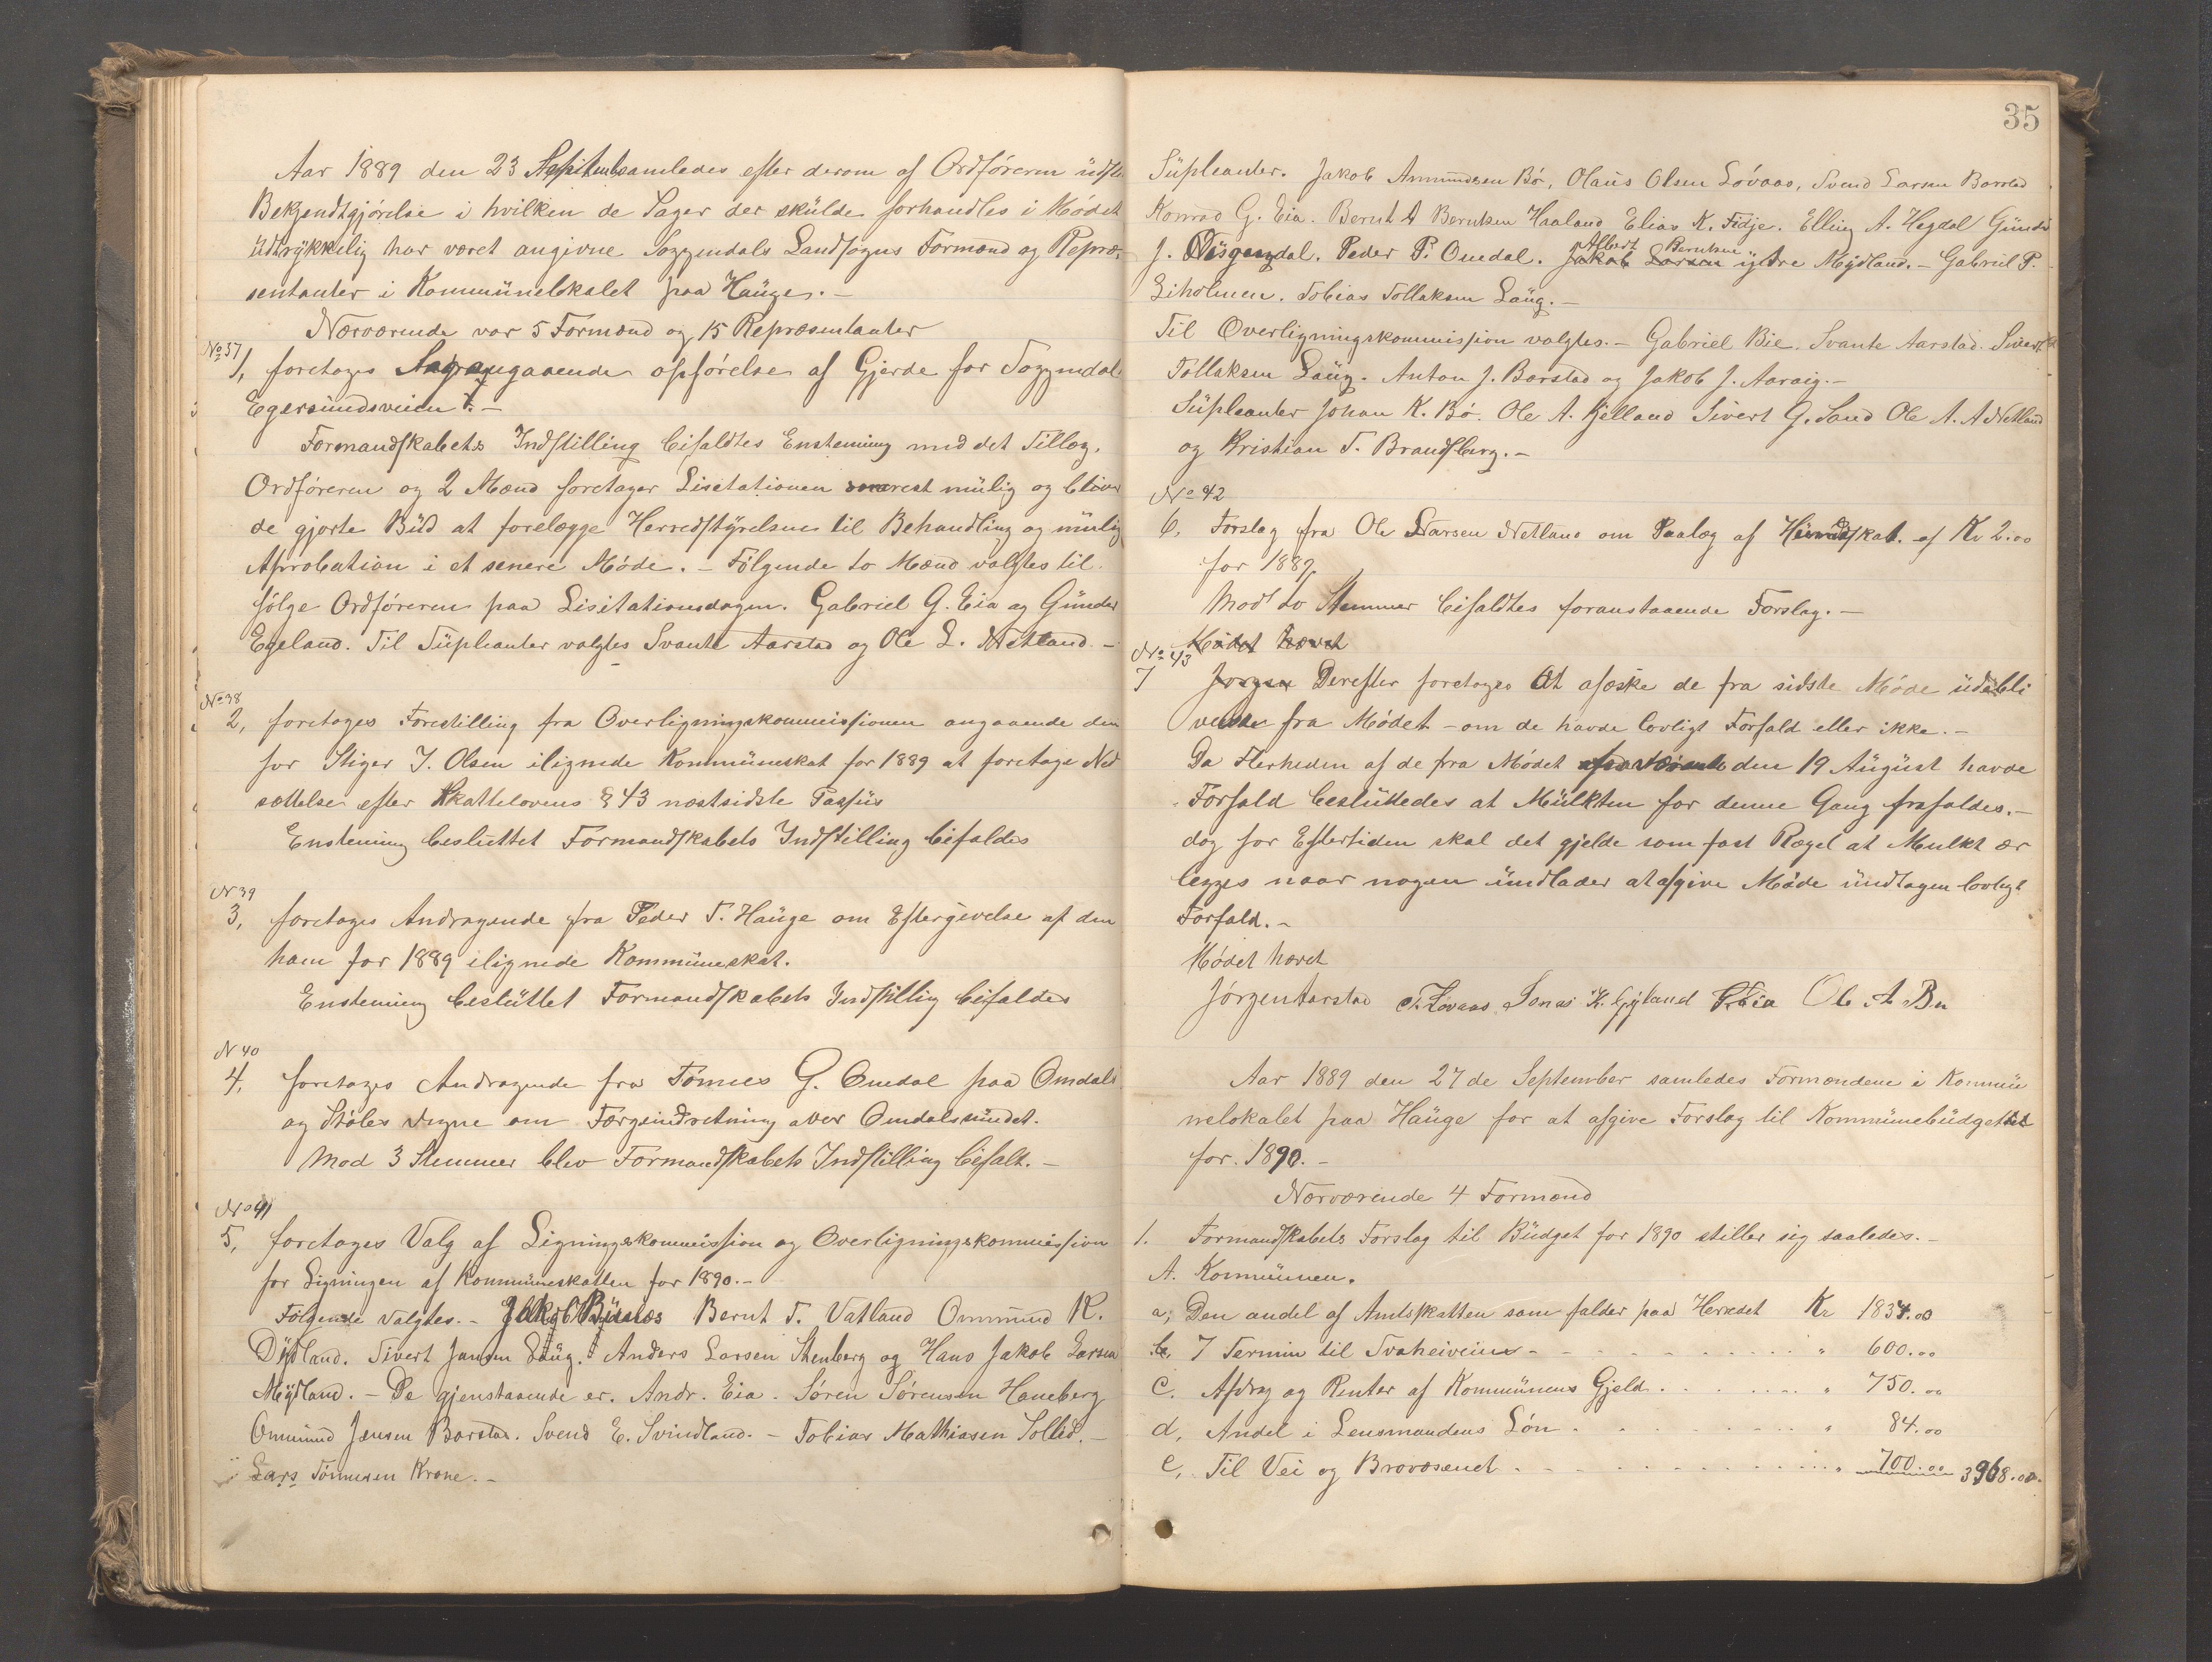 Aar 1889 den 23 Septemb samledes efter derom af Ordføreren udste
Bekjendtgjørelse i hvilken de Sager der skulde forhandles i Mødet
udtrykkelig har været angivne Soggendals Landsogns Formænd og Repræ-
sentanter i Kommunelokalet paa Hauge.-
Nærværende var 5 Formænd og 15 Repræsentanter
No 37
1, foretoges Sag angaaende opførelse af Gjerde for Soggendal
Egersundsveien.-
Formandskabets Indstilling bifaldtes Enstemig med det Tillæg.
Ordføreren og 2 Mænd foretager Lisitationen snarest mulig og bliver
de gjorte Bud at forelægge Herredstyrelsen til Behandling og mulig
Aprobation i et senere Møde. - Følgende to Mænd valgtes til
følge Ordføreren paa Lisitationsdagen. Gabriel G. Eia og Gunder
Egeland. Til Supleanter valgtes Svante Aarstad og Ole L. Netland.-
No 38
2, foretoges Forestilling fra Overligningskommissionen angaaende den
for Stiger J. Olsen ilignede Kommuneskat for 1889 at foretage Ned
sættelse efter Skattelovens § 43 næstsidste Passus
Enstemig besluttet Formandskabets Indstilling bifaldes
N 39
3, foretoges Andragende fra Peder T. Hauge om Eftergivelse af den
ham for 1889 ilignede Kommuneskat.
Enstemig besluttet Formandskabets Indstillig bifaldes
N 40
4, foretoges Andragende fra Tønnes G. Omdal paa Omdals
og Støles vegne om Færgeindretning over Omdalsundet.
Mod 3 Stemmer blev Formandskabets Indstilling bifalt.-
No 41
5, foretoges Valg af Ligningskommission og Overligningskommission
for Ligningen af Kommuneskatten for 1890.-
Følgende valgtes.- Bernt T. Vatland Ommund K.
Dydland. Sivert Jansen Laug. Anders Larsen Stenberg og Hans Jakob Larsen
Mydland. - De gjenstaaende er. Andr. Eia. Søren Sørensen Haneberg
Ommund Jensen Barstad. Svend E. Svindland. - Tobias Mathiasen Solled.-
Lars Tønnesen Krone.-
35
Supleanter. Jakob Ammundsen Bø, Olaus Olsen Løvaas, Svend Larsen Barstad
Konrad G. Eia. Bernt A Berntsen Haaland Elias K. Fidje. Elling A. Hegdal Gunder
Albert Berntsen
J. Peder P. Omdal. Jakob Larsen ytre Mydland. - Gabriel P.
Liholmen. Tobias Tollaksen Laug.-
Til Overligningskommission valgtes.- Gabriel Bie. Svante Aarstad. Sivert
Tollaksen Laug. Anton J. Barstad og Jakob J. Aaraig.-
Supleanter Johan K. Bø. Ole A. Kjelland Sivert G. Sand Ole A. A Netland
og Kristian T. Brandsberg.-
No 42
6, Forslag fra Ole Larsen Netland om Paalæg af Hundeskat af Kr 2.00
for 1889.
Mod to Stemmer bifaldtes foranstaaende Forslag.-
Mødet hævet
No 43
7 Jørgen Derefter foretoges at afæske de fra sidste Møde udebli
vende fra Mødet - om de havde lovligt Forfald eller ikke.-
Da Flerheden af de fra Mødet fraværende den 19 August havde
Forfald besluttedes at Mulkten for denne Gang frafaldes.-
dog for Eftertiden skal det gjelde som fast Regel at Mulkt ær
legges naar nogen undlader at afgive Møde undtagen lovligt
Forfald.-
Mødet hævet
Jørgen Aarstad T. Løvaas Jonas K. Gyland Eia Ole A Bu
Aar 1889 den 27de September samledes Formændene i Kommu
nelokalet paa Hauge for at afgive Forslag til Kommunebudgettet
for 1890.-
Nærværende 4 Formænd
1. Formandskabets Forslag til Budget for 1890 stiller sig saaledes.-
A. Kommunen.
a, Den andel af Amtsskatten som falder paa Herredet Kr 1834.00
b, 7 Termin til Svaheiveien - - - - " 600.00
c. Afdrag og Renter af Kommunens Gjeld . . . . " 750.00
d, Andel i Lensmandens Løn . . . . " 84.00
e, Til Vei og Brovæsenet . . . . " 700.00 3968.00.